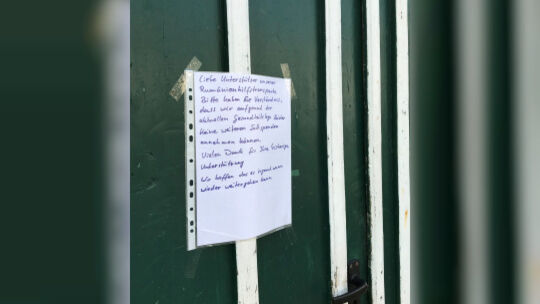 Liebe Unterstützer unserer
Rumänienhilfstransporte
Bitte haben Sie Verständnis,
dass wir aufgrund der
aktuellen Gesundheitslage leider
keine weiteren Sachspenden
annehmen können.
Vielen Dank für Ihre bisherige
Unterstützung
Wir hoffen das es irgend wann
wieder weitergehen kann